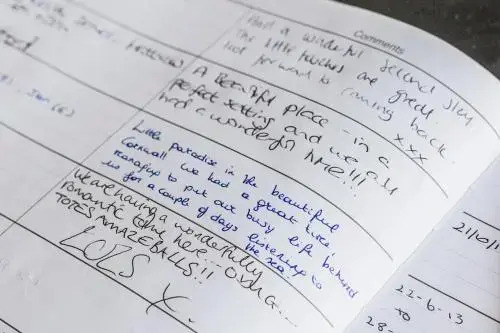 Comments
Had a wonderful second stay
The little touches are great.
look forward to coming back.
xxx
A beautiful place - in a
perfect setting and we all
had a wonderful time!!!
Little paradise in the beautiful
Cornwall we had a great time
to put our busy life behind
us for a couple of days listening to
the sea.
We are having a wonderfully
romantic time here...
TOTES AMAZEBALLS!!
LOLS X.
22-6-13
to
28-